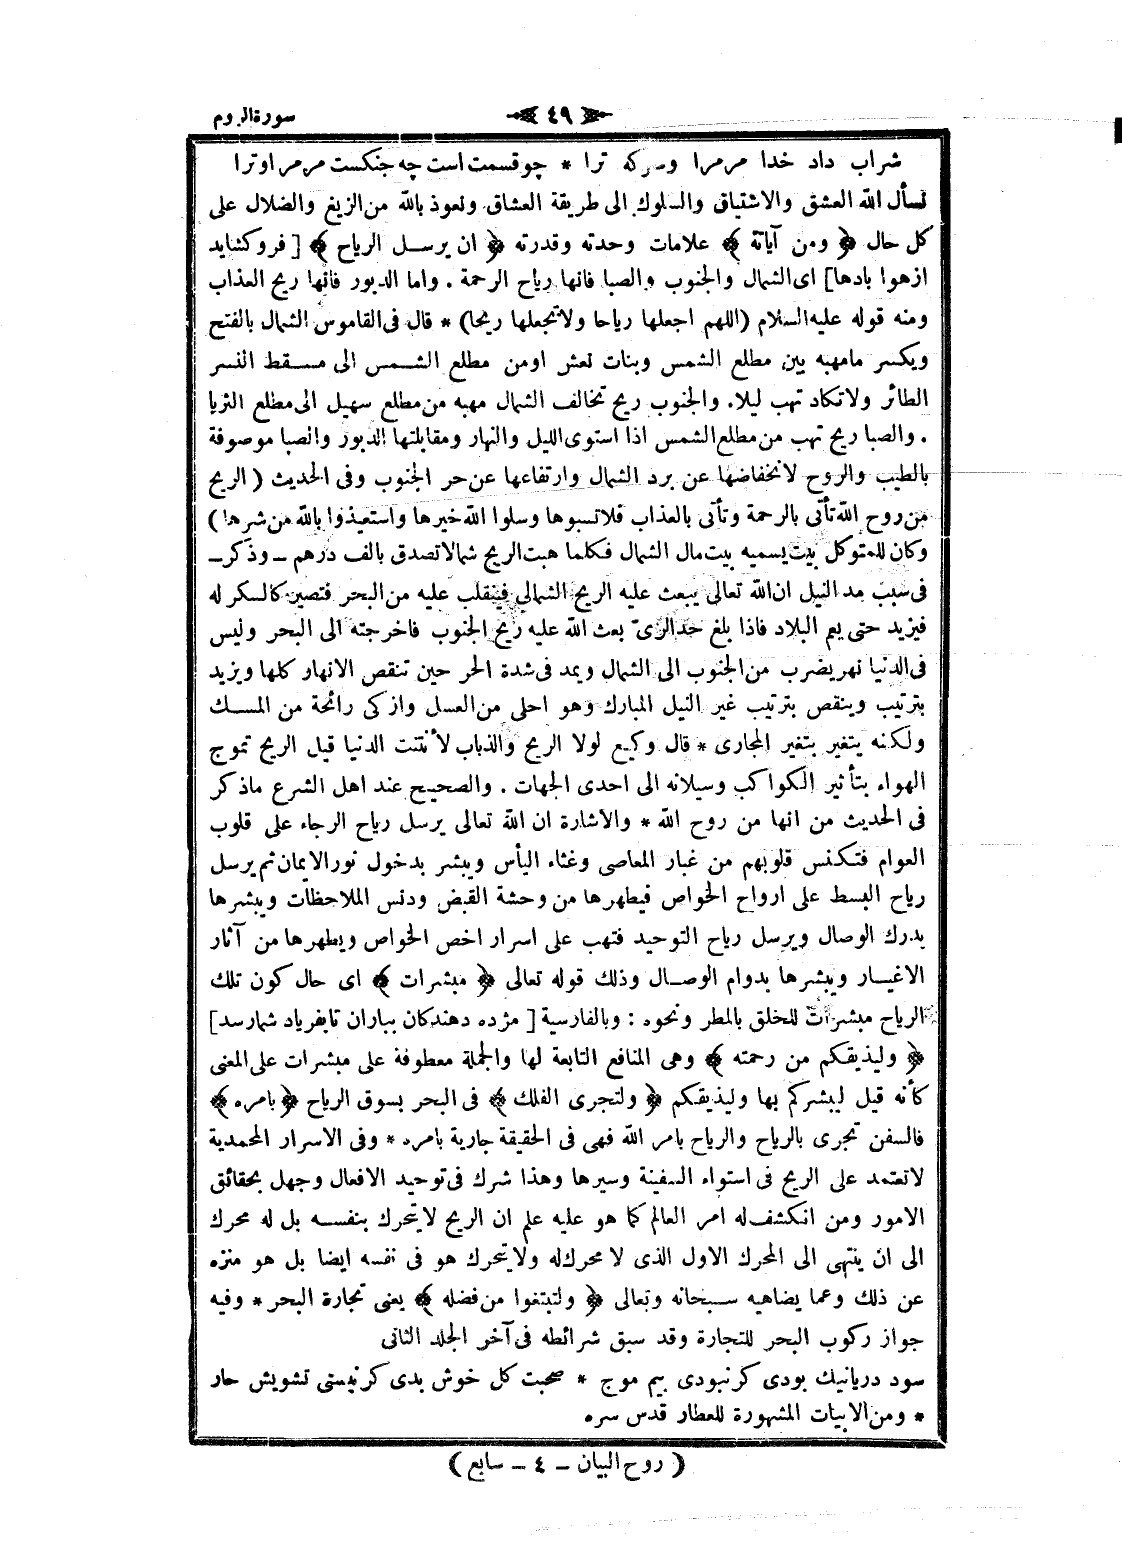 سورة الروم
٤٩
شراب داد خدا مرمرا وسركه ترا * چو قسمت است چه جنكست مرمر او ترا
نسأل الله العشق والاشتياق والسلوك الى طريقة العشاق ونعوذ بالله من الزيغ والضلال على
كل حال ﴿ ومن آياته ﴾ علامات وحدته وقدرته ﴿ ان يرسل الرياح ﴾ [ فروكشايد
ازهوا بادها] اى الشمال والجنوب والصبا فانها رياح الرحمة . واما الدبور فانها ريح العذاب
ومنه قوله عليه السلام (اللهم اجعلها رياحا ولاتجعلها ريحا) * قال فى القاموس الشمال بالفتح
ويكسر مامهبه بين مطلع الشمس وبنات نعش اومن مطلع الشمس الى مسقط النسر
الطائر ولاتكاد تهب ليلا. والجنوب ريح تخالف الشمال مهبه من مطلع سهيل الى مطلع الثريا
. والصبا ريح تهب من مطلع الشمس اذا استوى الليل والنهار ومقابلتها الدبور والصبا موصوفة
بالطيب والروح لانخفاضها عن برد الشمال وارتفاعها عن حر الجنوب وفى الحديث ( الريح
من روح الله تأتى بالرحمة وتأتى بالعذاب فلاتسبوها وسلوا الله خيرها واستعيذوا بالله من شرها)
وكان للمتوكل بيت يسميه بيت مال الشمال فكلما هبت الريح شمالا تصدق بالف درهم ــ وذكر ــ
فى سبب مد النيل ان الله تعالى يبعث عليه الريح الشمالى فينقلب عليه من البحر فتصير كالسكر له
فيزيد حتى يعم البلاد فاذا بلغ حد الرىّ بعث الله عليه ريح الجنوب فاخرجته الى البحر وليس
فى الدنيا نهر يضرب من الجنوب الى الشمال ويمد فى شدة الحر حين تنقص الانهار كلها ويزيد
بترتيب وينقص بترتيب غير النيل المبارك وهو احلى من العسل وازكى رائحة من المسك
ولكنه يتغير بتغير المجارى * قال وكيع لولا الريح والذباب لأنتنت الدنيا قيل الريح تموج
الهواء بتأثير الكواكب وسيلانه الى احدى الجهات . والصحيح عند اهل الشرع ماذكر
فى الحديث من انها من روح الله * والاشارة ان الله تعالى يرسل رياح الرجاء على قلوب
العوام فتكنس قلوبهم من غبار المعاصى وغثاء اليأس ويبشر بدخول نور الايمان ثم يرسل
رياح البسط على ارواح الخواص فيطهرها من وحشة القبض ودنس الملاحظات ويبشرها
بدرك الوصال ويرسل رياح التوحيد فتهب على اسرار اخص الخواص ويطهرها من آثار
الاغيار ويبشرها بدوام الوصال وذلك قوله تعالى ﴿ مبشرات ﴾ اى حال كون تلك
الرياح مبشرات للخلق بالمطر ونحوه : وبالفارسية [ مژده دهندكان بباران تابفرياد شمارسد]
﴿ وليذيقكم من رحمته ﴾ وهى المنافع التابعة لها والجملة معطوفة على مبشرات على المعنى
كأنه قيل ليبشركم بها وليذيقكم ﴿ ولتجرى الفلك ﴾ فى البحر بسوق الرياح ﴿بامره ﴾
فالسفن تجرى بالرياح والرياح بامر الله فهى فى الحقيقة جارية بامره * وفى الاسرار المحمدية
لاتعتمد على الريح فى استواء السفينة وسيرها وهذا شرك فى توحيد الافعال وجهل بحقائق
الامور ومن انكشف له امر العالم كما هو عليه علم ان الريح لايتحرك بنفسه بل له محرك
الى ان ينتهى الى المحرك الاول الذى لا محرك له ولايتحرك هو فى نفسه ايضا بل هو منزه
عن ذلك وعما يضاهيه سبحانه وتعالى ﴿ ولتبتغوا من فضله ﴾ يعنى تجارة البحر * وفيه
جواز ركوب البحر للتجارة وقد سبق شرائطه فى آخر الجلد الثانى
سود دريانيك بودى كرنبودى بيم موج * صحبت كل خوش بدى كرنيستى تشويش خار
* ومن الابيات المشهورة للعطار قدس سره
( روح البيان ــ ٤ ــ سابع )